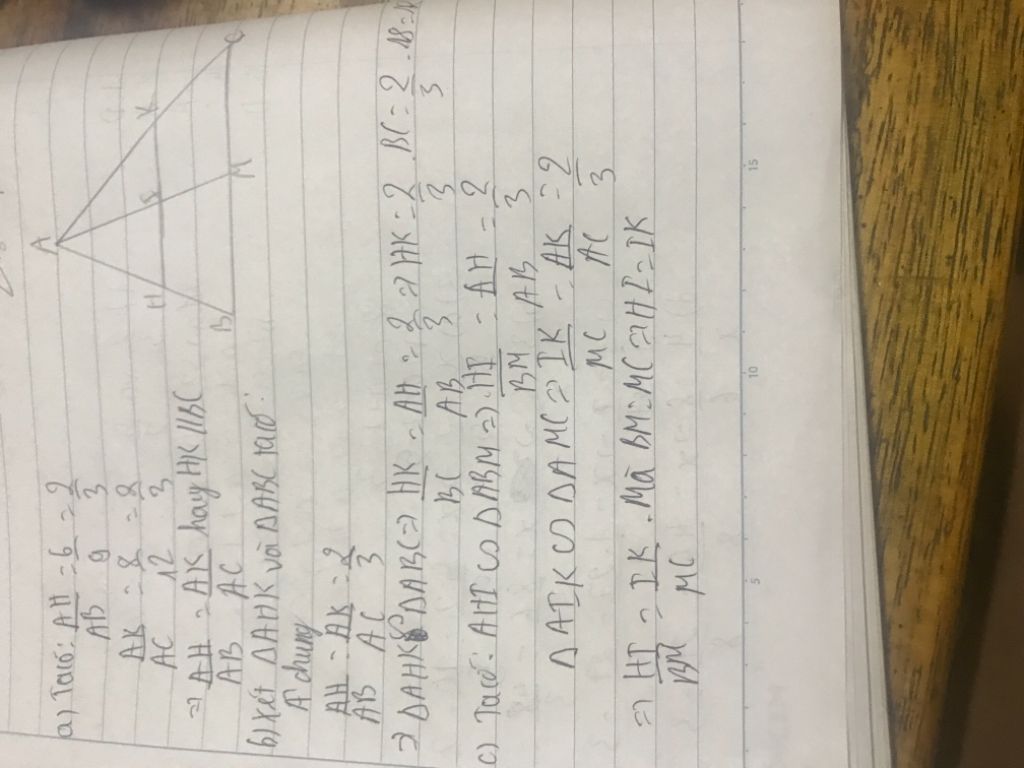 a) Ta có: AH/AB = 6/9 = 2/3
AK/AC = 8/12 = 2/3
=> AH/AB = AK/AC hay HK // BC
b) Xét ΔAHK và ΔABC ta có:
A chung
AH/AB = AK/AC = 2/3
=> ΔAHK ∽ ΔABC => HK/BC = AH/AB = 2/3 => HK = 2/3 . BC = 2/3 . 18 =
c) Ta có: AHI ∽ ΔABM => HI/BM = AH/AB = 2/3
ΔAIK ∽ ΔAMC => IK/MC = AK/AC = 2/3
=> HI/BM = IK/MC . Mà BM = MC => HI = IK
A
H
I
K
B
M
C
5
10
15